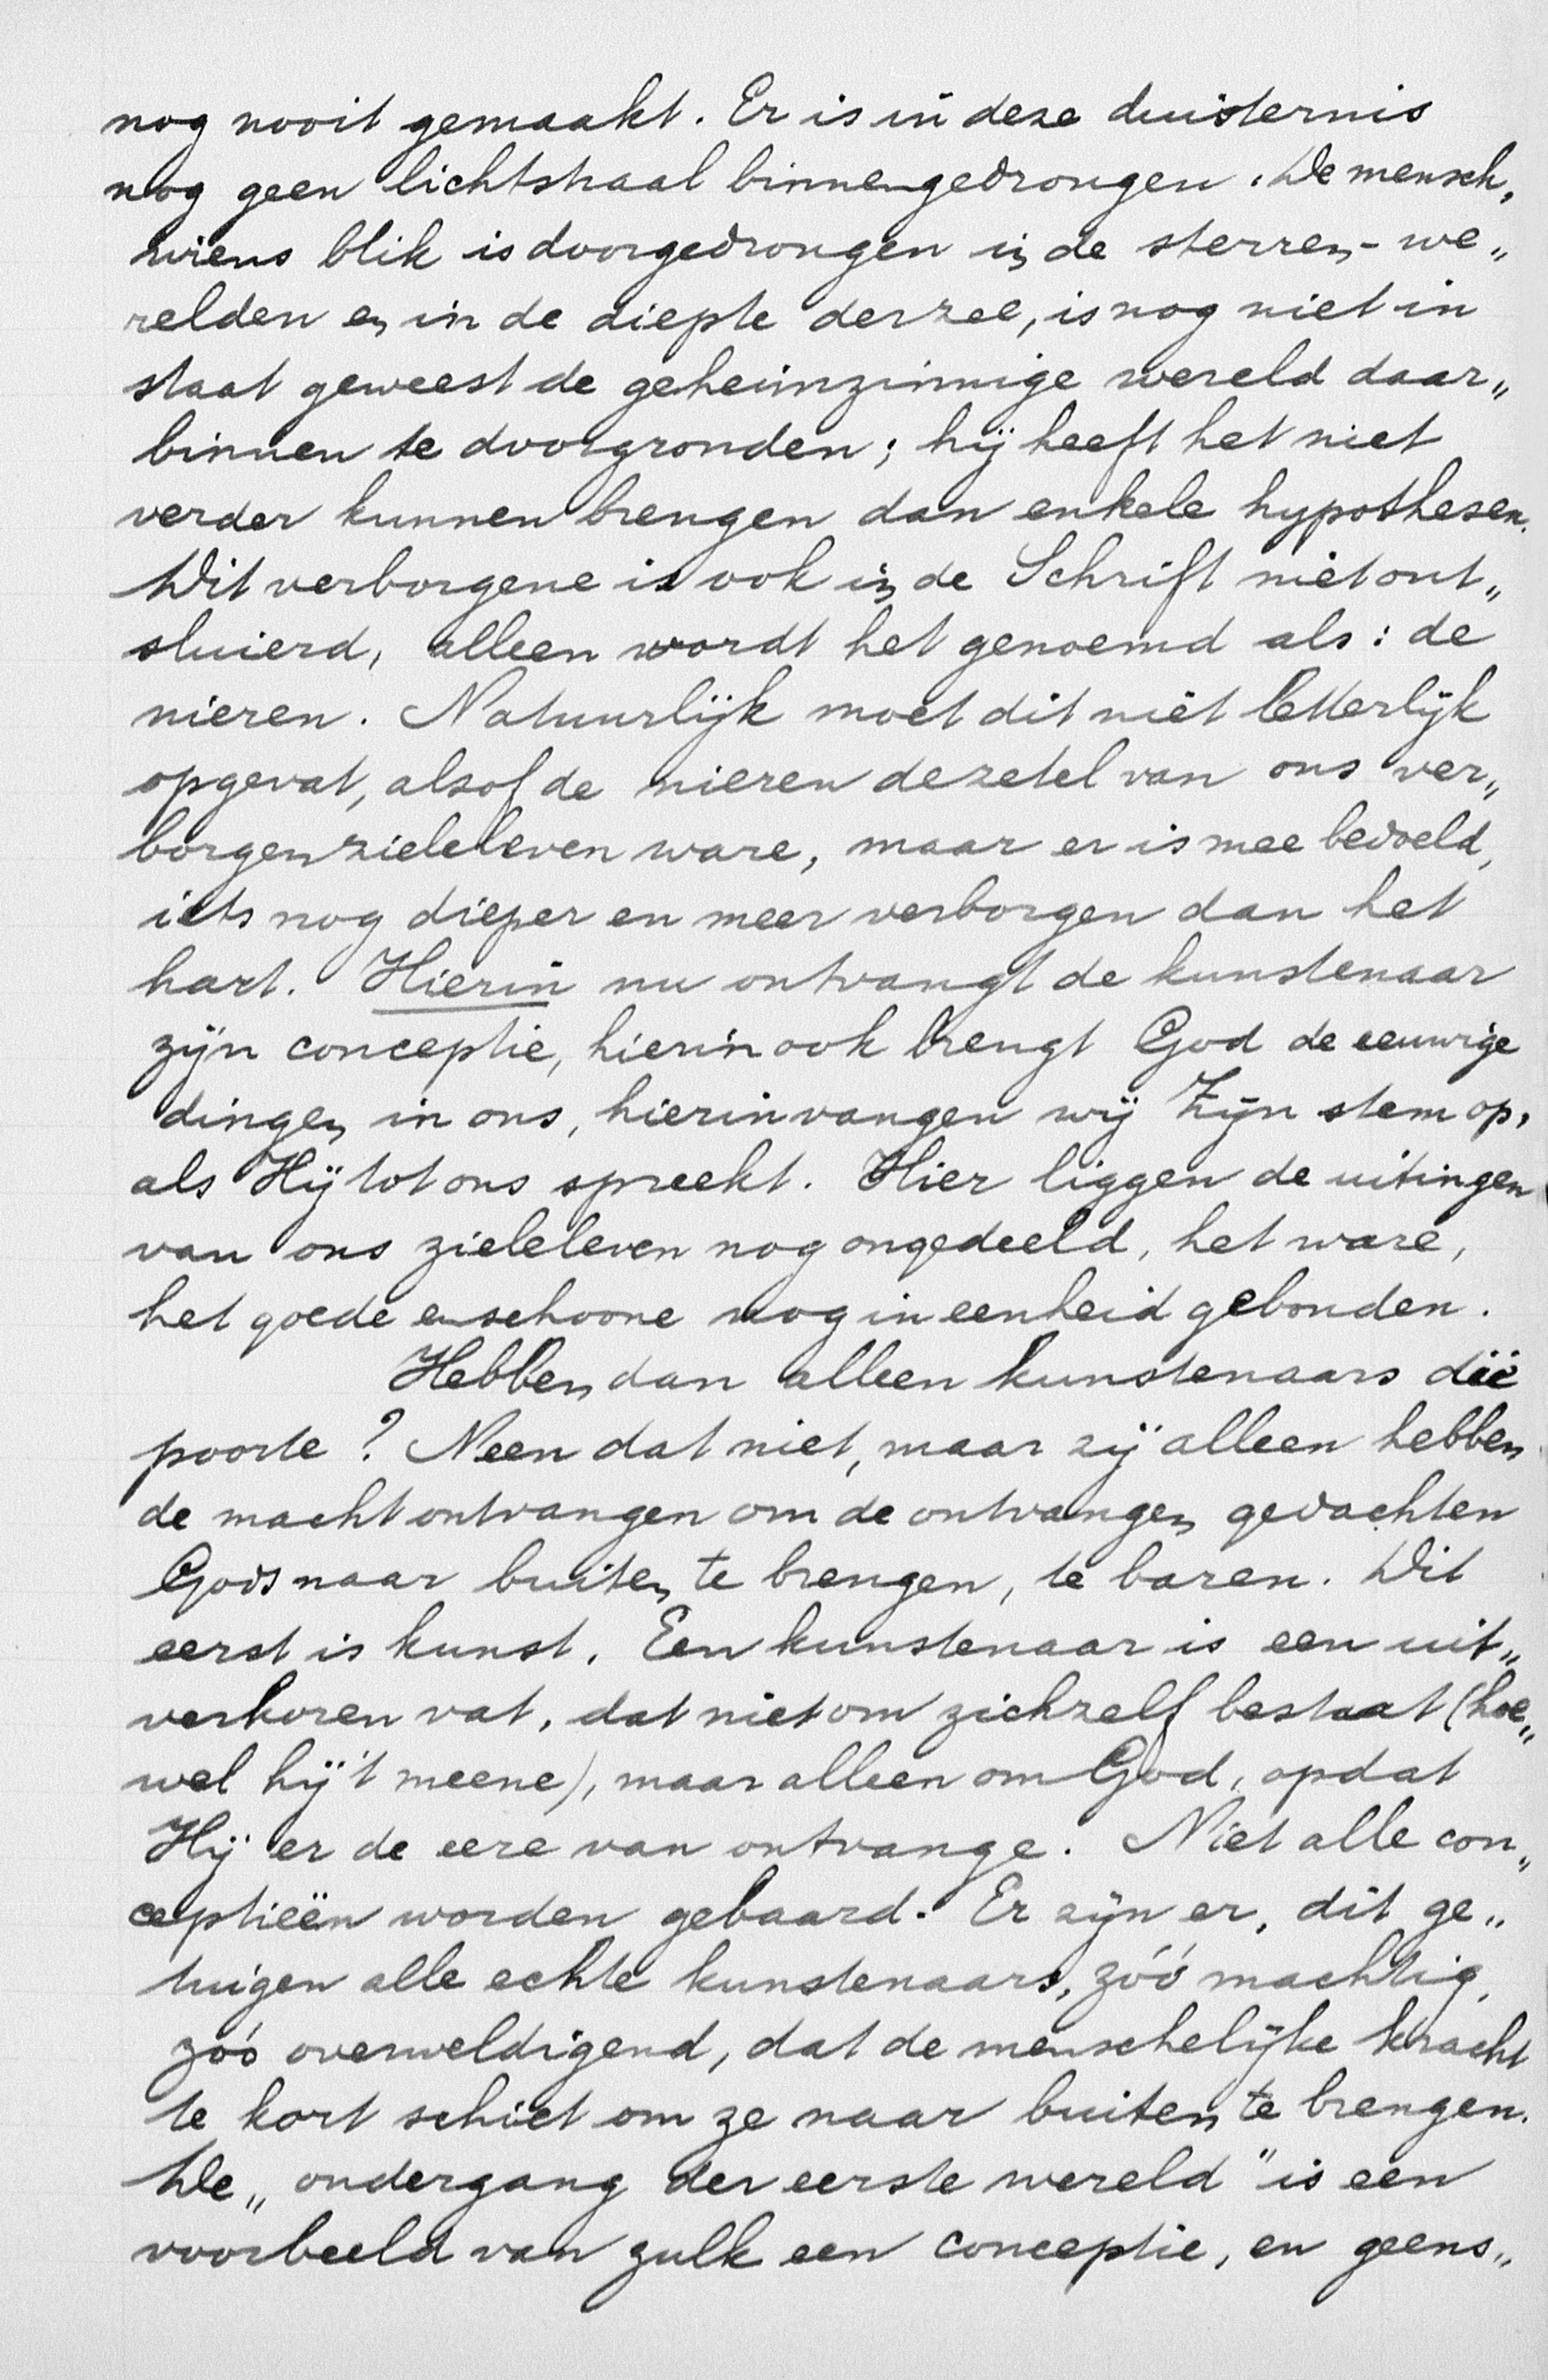 nog nooit gemaakt. Er is in deze duisternis
nog geen lichtstraal binnengedrongen. De mensch,
wiens blik is doorgedrongen in de sterren-we„
relden en in de diepte der zee, is nog niet in
staat geweest de geheimzinnige wereld daar„
binnen te doorgronden; hij heeft het niet
verder kunnen brengen dan enkele hypothesen.
Dit verborgene is ook in de Schrift niet ont„
sluierd, alleen wordt het genoemd als: de
nieren. Natuurlijk moet dit niet letterlijk
opgevat, alsof de nieren de zetel van ons ver„
borgen zieleleven ware, maar er is mee bedoeld,
iets nog dieper en meer verborgen dan het
hart. Hierin nu ontvangt de kunstenaar
zijn conceptie, hierin ook brengt God de eeuwige
dingen in ons, hierin vangen wij Zijn stem op,
als Hij tot ons spreekt. Hier liggen de uitingen
van ons zieleleven nog ongedeeld, het ware,
het goede en schoone nog in eenheid gebonden.
Hebben dan alleen kunstenaars die
poorte? Neen dat niet, maar zij alleen hebben
de macht ontvangen om de ontvangen gedachten
Gods naar buiten te brengen, te baren. Dit
eerst is kunst. Een kunstenaar is een uit„
verkoren vat, dat niet om zichzelf bestaat (hoe„
wel hij 't meene), maar alleen om God, opdat
Hij er de eere van ontvange. Niet alle con„
ceptieën worden gebaard. Er zijn er, dit ge„
tuigen alle echte kunstenaars, zóó machtig,
zóó overweldigend, dat de menschelijke kracht
te kort schiet om ze naar buiten te brengen.
De „ondergang der eerste wereld" is een
voorbeeld van zulk een conceptie, en geens„